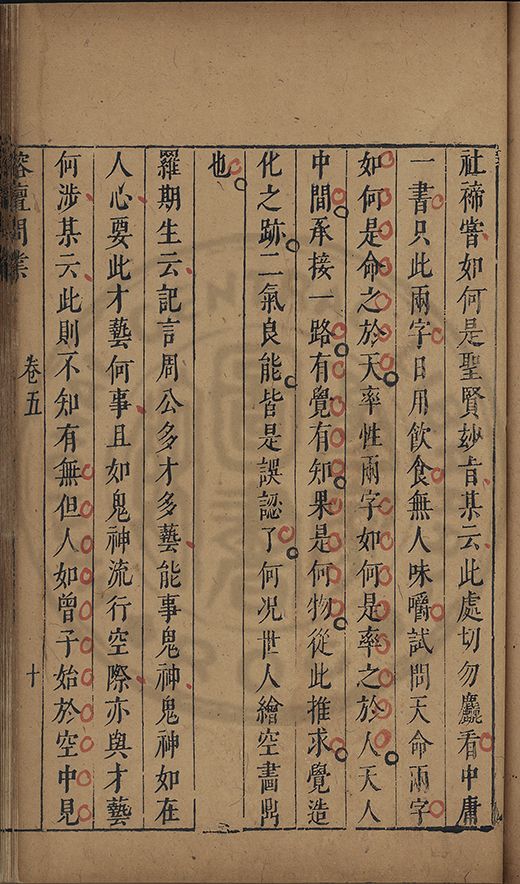 社禘嘗如何是聖賢妙旨某云此處切勿麤看中庸
一書只此兩字日用飲食無人味嚼試問天命兩字
如何是命之於天率性兩字如何是率之於人天人
中間承接一路有覺有知果是何物從此推求覺造
化之跡二氣良能皆是誤認了何况世人繪空畫鼎
也
羅期生云記言周公多才多藝能事鬼神鬼神如在
人心要此才藝何事且如鬼神流行空際亦與才藝
何涉某云此則不知有無但人如曾子始於空中見
榕壇問業 卷五 十